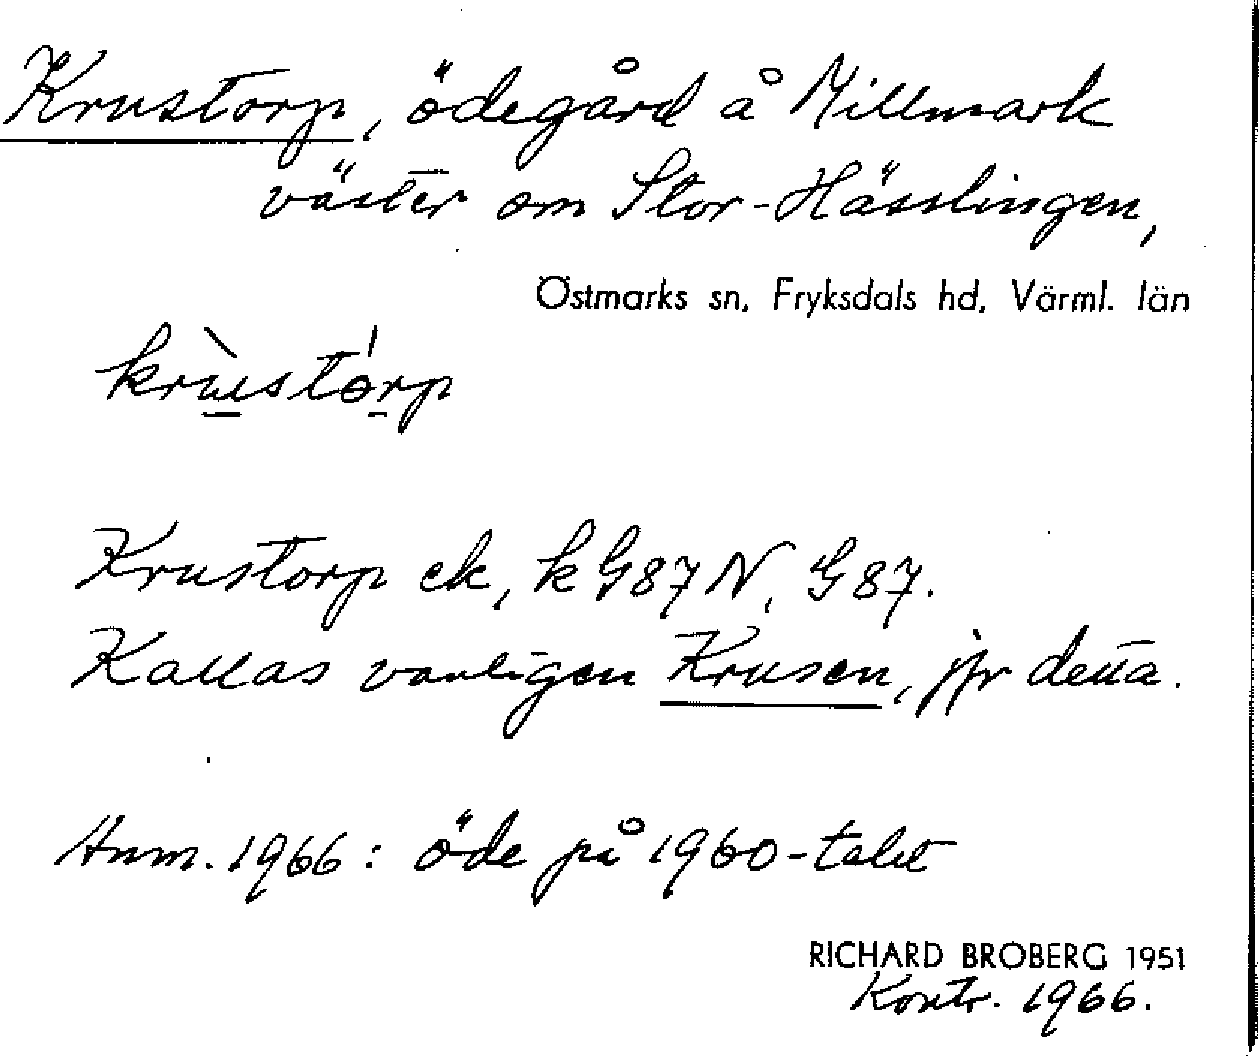 Krustorp, ödegård å Millmark
väster om Stor-Hässlingen,
Östmarks sn, Fryksdals hd, Värml. län
krùstórp
Krustorp ek, k G87N, G87.
Kallas vanligen Krusen, jfr detta.
Anm. 1966: öde på 1960-talet
RICHARD BROBERG 1951
Kontr. 1966.